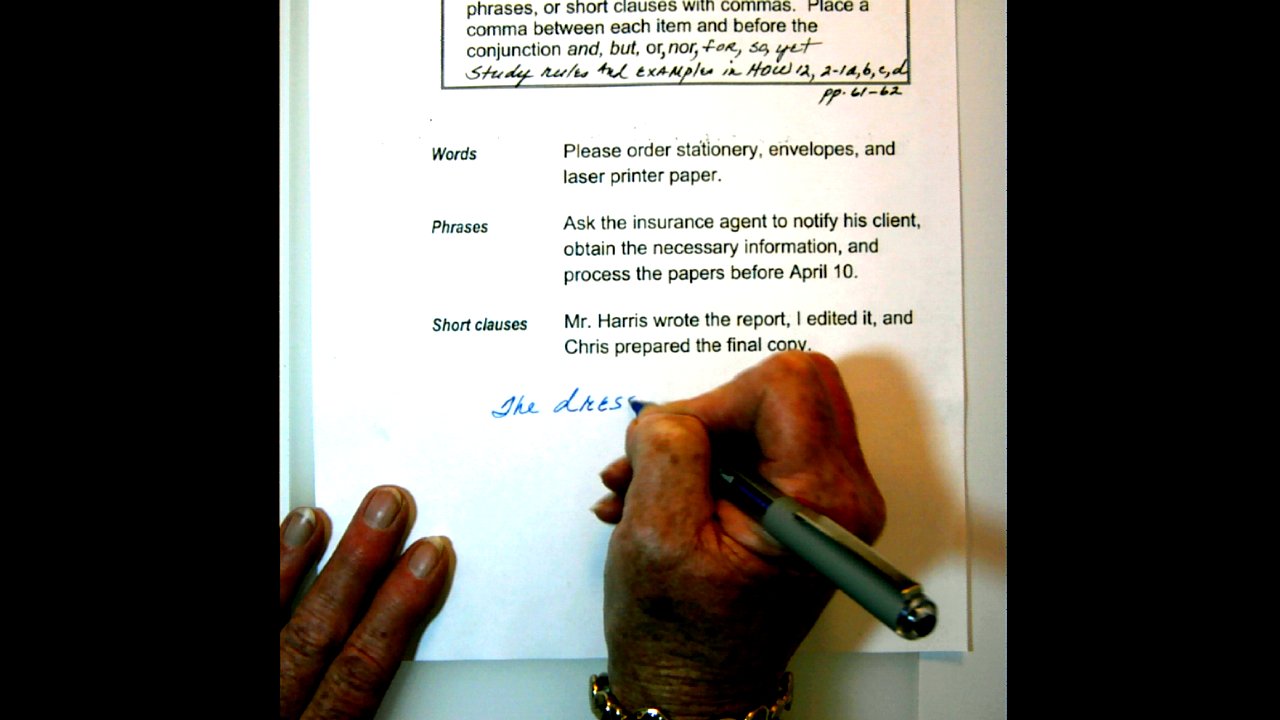 phrases, or short clauses with commas. Place a
comma between each item and before the
conjunction and, but, or, nor, for, so, yet
Study rules and examples in HOW 12, 2-1a, b, c, d
pp. 61-62
Words Please order stationery, envelopes, and
laser printer paper.
Phrases Ask the insurance agent to notify his client,
obtain the necessary information, and
process the papers before April 10.
Short clauses Mr. Harris wrote the report, I edited it, and
Chris prepared the final copy.
The dress